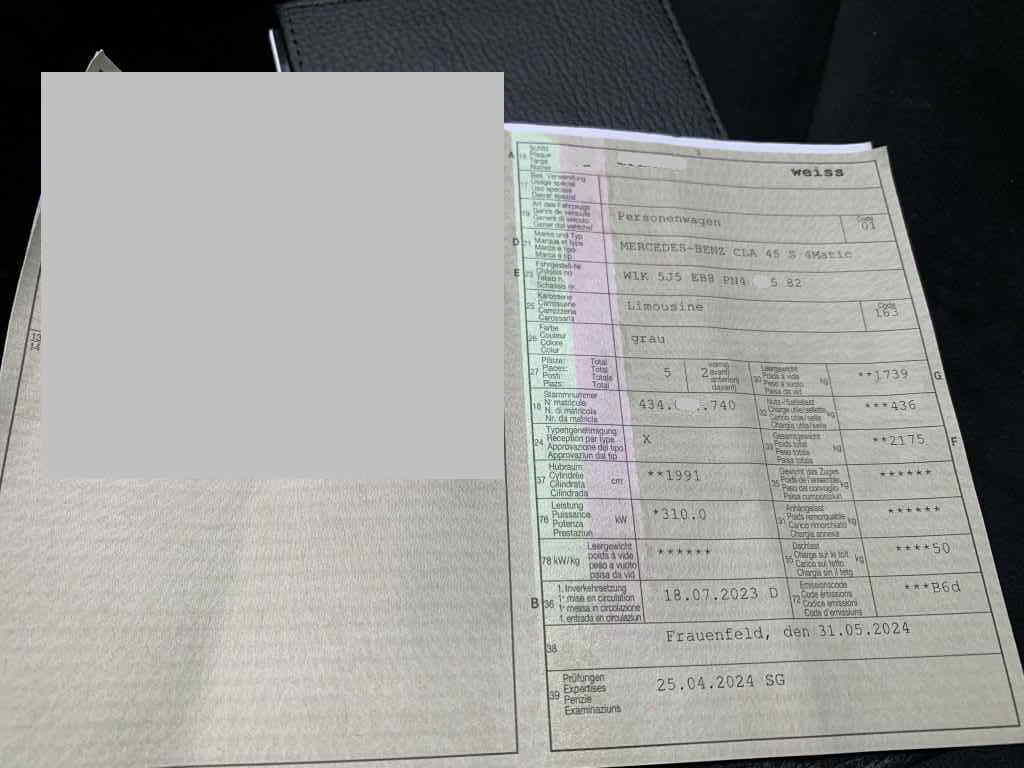 A 15 Schild
Plaque
Targa
Numer
weiss
17 Bes. Verwendung
Usage spécial
Uso speciale
Diever spezial
19 Art des Fahrzeugs
Genre de véhicule
Genere di veicolo
Gener dal vehichel
Personenwagen
Code
01
D 21 Marke und Typ
Marque et type
Marca e tipo
Marca e tip
MERCEDES-BENZ CLA 45 S 4Matic
E 23 Fahrgestell-Nr.
Châssis no
Telaio n.
Schassis nr.
W1K 5J5 EB8 PN4 5 82
25 Karosserie
Carrosserie
Carrozzeria
Carossaria
Limousine
Code
163
26 Farbe
Couleur
Colore
Colur
grau
27 Plätze: Total
Places: Total
Posti: Totale
Plazs: Total
5
2
vorne
avant
anteriori
davant
30 Leergewicht
Poids à vide
Peso a vuoto
Paisa da vid
kg
**1739
G
18 Stammnummer
N° matricule
N. di matricola
Nr. da matricla
434. .740
32 Nutz-/Sattellast
Charge utile/sellette
Carico utile/sella
Chargia utila/sella
kg
***436
24 Typengenehmigung
Réception par type
Approvazione del tipo
Approvaziun dal tip
X
33 Gesamtgewicht
Poids total
Peso totale
Paisa totala
kg
**2175
F
37 Hubraum
Cylindrée
Cilindrata
Cilindrada
cm³
**1991
35 Gewicht des Zuges
Poids de l'ensemble
Peso del convoglio
Paisa cumposiziun
kg
******
76 Leistung
Puissance
Potenza
Prestaziun
kW
*310.0
31 Anhängelast
Poids remorquable
Carico rimorchiato
Chargia annexa
kg
******
78 kW/kg Leergewicht
poids à vide
peso a vuoto
paisa da vid
******
55 Dachlast
Charge sur le toit
Carico sul tetto
Chargia sin il tetg
kg
****50
B 36 1. Inverkehrsetzung
1re mise en circulation
1a messa in circolazione
1. entrada en circulaziun
18.07.2023 D
72 Emissionscode
Code émissions
Codice emissioni
Code d'emissiuns
***B6d
38
Frauenfeld, den 31.05.2024
39 Prüfungen
Expertises
Perizie
Examinaziuns
25.04.2024 SG